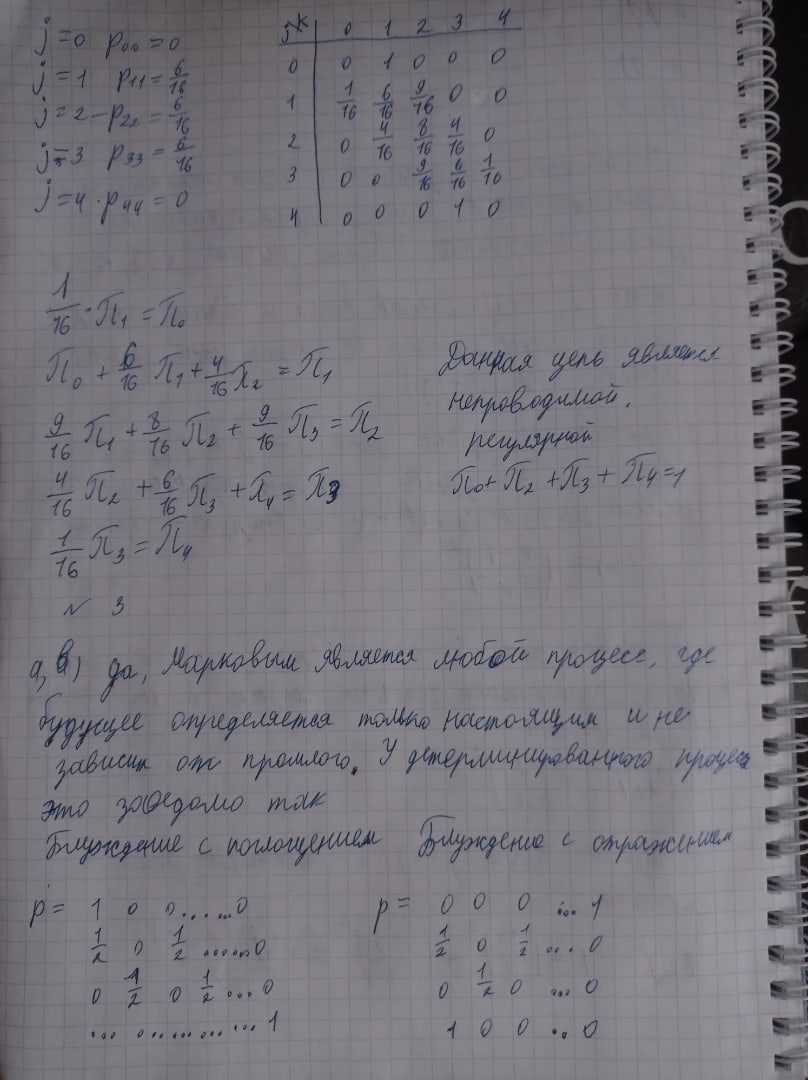 j=0 p₀₀ = 0
j=1 p₁₁ = 6/16
j=2 - p₂₂ = 6/16
j=3 p₃₃ = 6/16
j=4 · p₄₄ = 0
j\k | 0 1 2 3 4
0 | 0 1 0 0 0
1 | 1/16 6/16 9/16 0 0
2 | 0 4/16 8/16 4/16 0
3 | 0 0 9/16 6/16 1/16
4 | 0 0 0 1 0
1/16 · π₁ = π₀
π₀ + 6/16 π₁ + 4/16 π₂ = π₁
9/16 π₁ + 8/16 π₂ + 9/16 π₃ = π₂
4/16 π₂ + 6/16 π₃ + π₄ = π₃
1/16 π₃ = π₄
Данная цепь является
непроводимой.
регулярной
π₀ + π₂ + π₃ + π₄ = 1
№ 3
а, в) да, Марковым является любой процесс, где
будущее определяется только настоящим и не
зависит от прошлого. У детерминированного процесса
это заведомо так
Блуждение с поглощением Блуждение с отражением
p = 1 0 0......0
1/2 0 1/2 ......0
0 1/2 0 1/2 ...0
... 0 ........... 1
p = 0 0 0 ... 1
1/2 0 1/2 ... 0
0 1/2 0 ... 0
1 0 0 .. 0